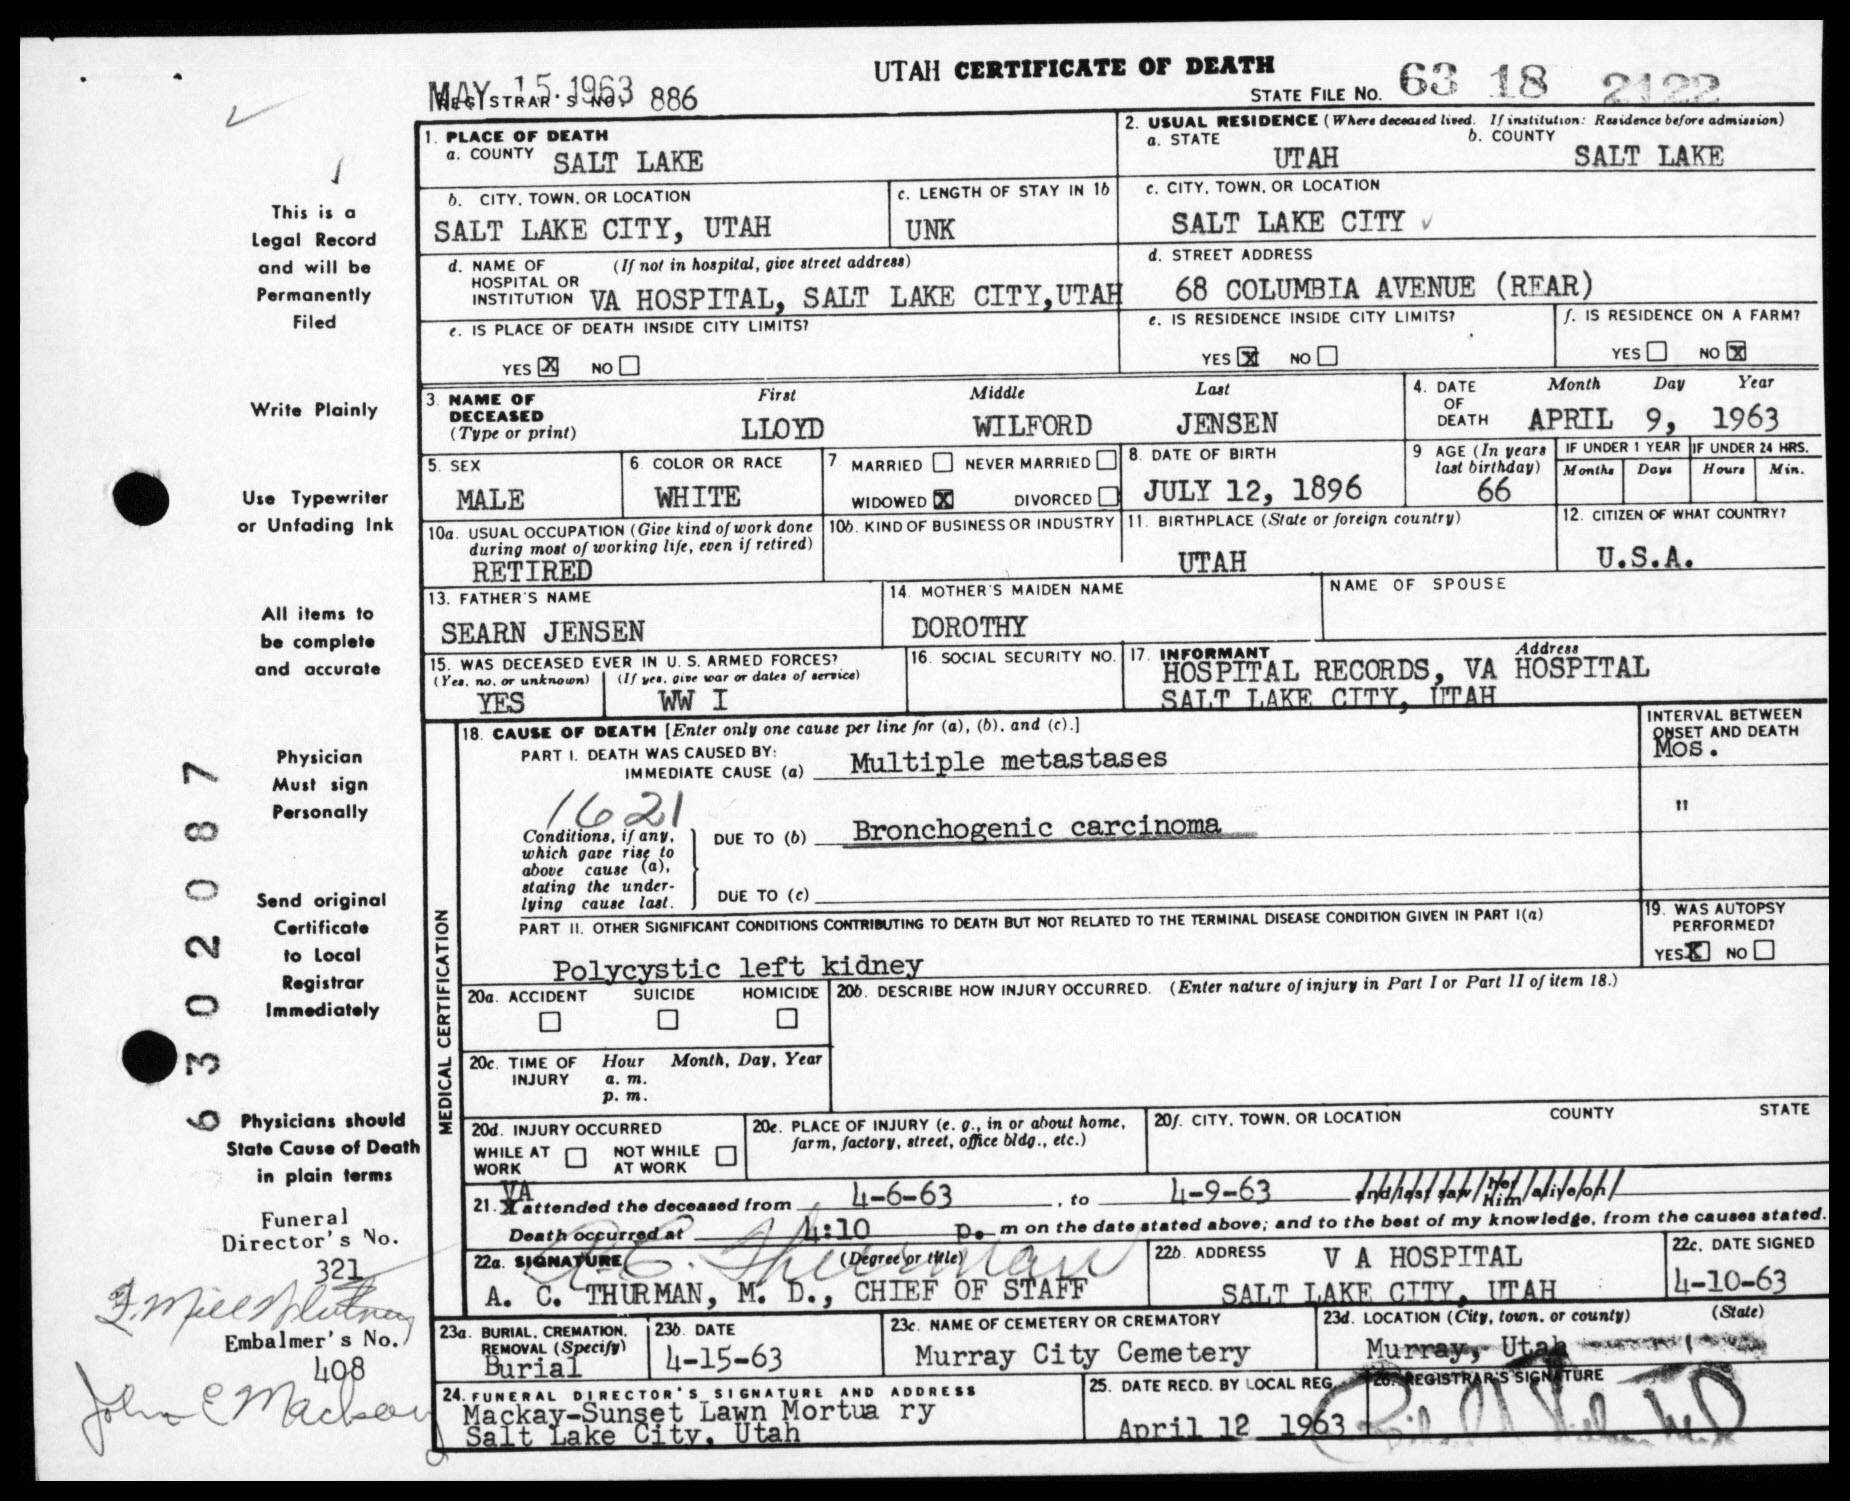 UTAH CERTIFICATE OF DEATH
MAY 15 1963
REGISTRAR'S NO. 886
STATE FILE NO. 63 18 2122
1. PLACE OF DEATH
a. COUNTY SALT LAKE
2. USUAL RESIDENCE (Where deceased lived. If institution: Residence before admission)
a. STATE UTAH b. COUNTY SALT LAKE
b. CITY, TOWN, OR LOCATION
SALT LAKE CITY, UTAH
c. LENGTH OF STAY IN 1b
UNK
c. CITY, TOWN, OR LOCATION
SALT LAKE CITY
d. NAME OF HOSPITAL OR INSTITUTION (If not in hospital, give street address)
VA HOSPITAL, SALT LAKE CITY,UTAH
d. STREET ADDRESS
68 COLUMBIA AVENUE (REAR)
e. IS PLACE OF DEATH INSIDE CITY LIMITS?
YES X NO
e. IS RESIDENCE INSIDE CITY LIMITS?
YES X NO
f. IS RESIDENCE ON A FARM?
YES NO X
3. NAME OF DECEASED (Type or print)
First Middle Last
LLOYD WILFORD JENSEN
4. DATE OF DEATH
Month Day Year
APRIL 9, 1963
5. SEX
MALE
6. COLOR OR RACE
WHITE
7. MARRIED NEVER MARRIED
WIDOWED X DIVORCED
8. DATE OF BIRTH
JULY 12, 1896
9 AGE (In years last birthday)
66
IF UNDER 1 YEAR
Months Days
IF UNDER 24 HRS.
Hours Min.
10a. USUAL OCCUPATION (Give kind of work done during most of working life, even if retired)
RETIRED
10b. KIND OF BUSINESS OR INDUSTRY
11. BIRTHPLACE (State or foreign country)
UTAH
12. CITIZEN OF WHAT COUNTRY?
U.S.A.
13. FATHER'S NAME
SEARN JENSEN
14. MOTHER'S MAIDEN NAME
DOROTHY
NAME OF SPOUSE
15. WAS DECEASED EVER IN U. S. ARMED FORCES?
(Yes, no, or unknown) (If yes, give war or dates of service)
YES WW I
16. SOCIAL SECURITY NO.
17. INFORMANT Address
HOSPITAL RECORDS, VA HOSPITAL
SALT LAKE CITY, UTAH
MEDICAL CERTIFICATION
18. CAUSE OF DEATH [Enter only one cause per line for (a), (b), and (c).]
INTERVAL BETWEEN ONSET AND DEATH
PART I. DEATH WAS CAUSED BY:
IMMEDIATE CAUSE (a) Multiple metastases Mos.
1621
Conditions, if any, which gave rise to above cause (a), stating the underlying cause last.
DUE TO (b) Bronchogenic carcinoma "
DUE TO (c)
PART II. OTHER SIGNIFICANT CONDITIONS CONTRIBUTING TO DEATH BUT NOT RELATED TO THE TERMINAL DISEASE CONDITION GIVEN IN PART I(a)
Polycystic left kidney
19. WAS AUTOPSY PERFORMED?
YES X NO
20a. ACCIDENT SUICIDE HOMICIDE
20b. DESCRIBE HOW INJURY OCCURRED. (Enter nature of injury in Part I or Part II of item 18.)
20c. TIME OF INJURY Hour Month, Day, Year
a. m.
p. m.
20d. INJURY OCCURRED
WHILE AT WORK NOT WHILE AT WORK
20e. PLACE OF INJURY (e. g., in or about home, farm, factory, street, office bldg., etc.)
20f. CITY, TOWN, OR LOCATION COUNTY STATE
21. VA attended the deceased from 4-6-63, to 4-9-63 and last saw her him alive on
Death occurred at 4:10 p. m on the date stated above; and to the best of my knowledge, from the causes stated.
22a. SIGNATURE (Degree or title)
A. C. THURMAN, M. D., CHIEF OF STAFF
22b. ADDRESS V A HOSPITAL
SALT LAKE CITY, UTAH
22c. DATE SIGNED
4-10-63
23a. BURIAL, CREMATION, REMOVAL (Specify)
Burial
23b. DATE
4-15-63
23c. NAME OF CEMETERY OR CREMATORY
Murray City Cemetery
23d. LOCATION (City, town, or county) (State)
Murray, Utah
24. FUNERAL DIRECTOR'S SIGNATURE AND ADDRESS
Mackay-Sunset Lawn Mortua ry
Salt Lake City, Utah
25. DATE RECD. BY LOCAL REG.
April 12 1963
26. REGISTRAR'S SIGNATURE
This is a
Legal Record
and will be
Permanently
Filed
Write Plainly
Use Typewriter
or Unfading Ink
All items to
be complete
and accurate
Physician
Must sign
Personally
Send original
Certificate
to Local
Registrar
Immediately
Physicians should
State Cause of Death
in plain terms
Funeral
Director's No.
321
Embalmer's No.
408
John E Mackay
6302087